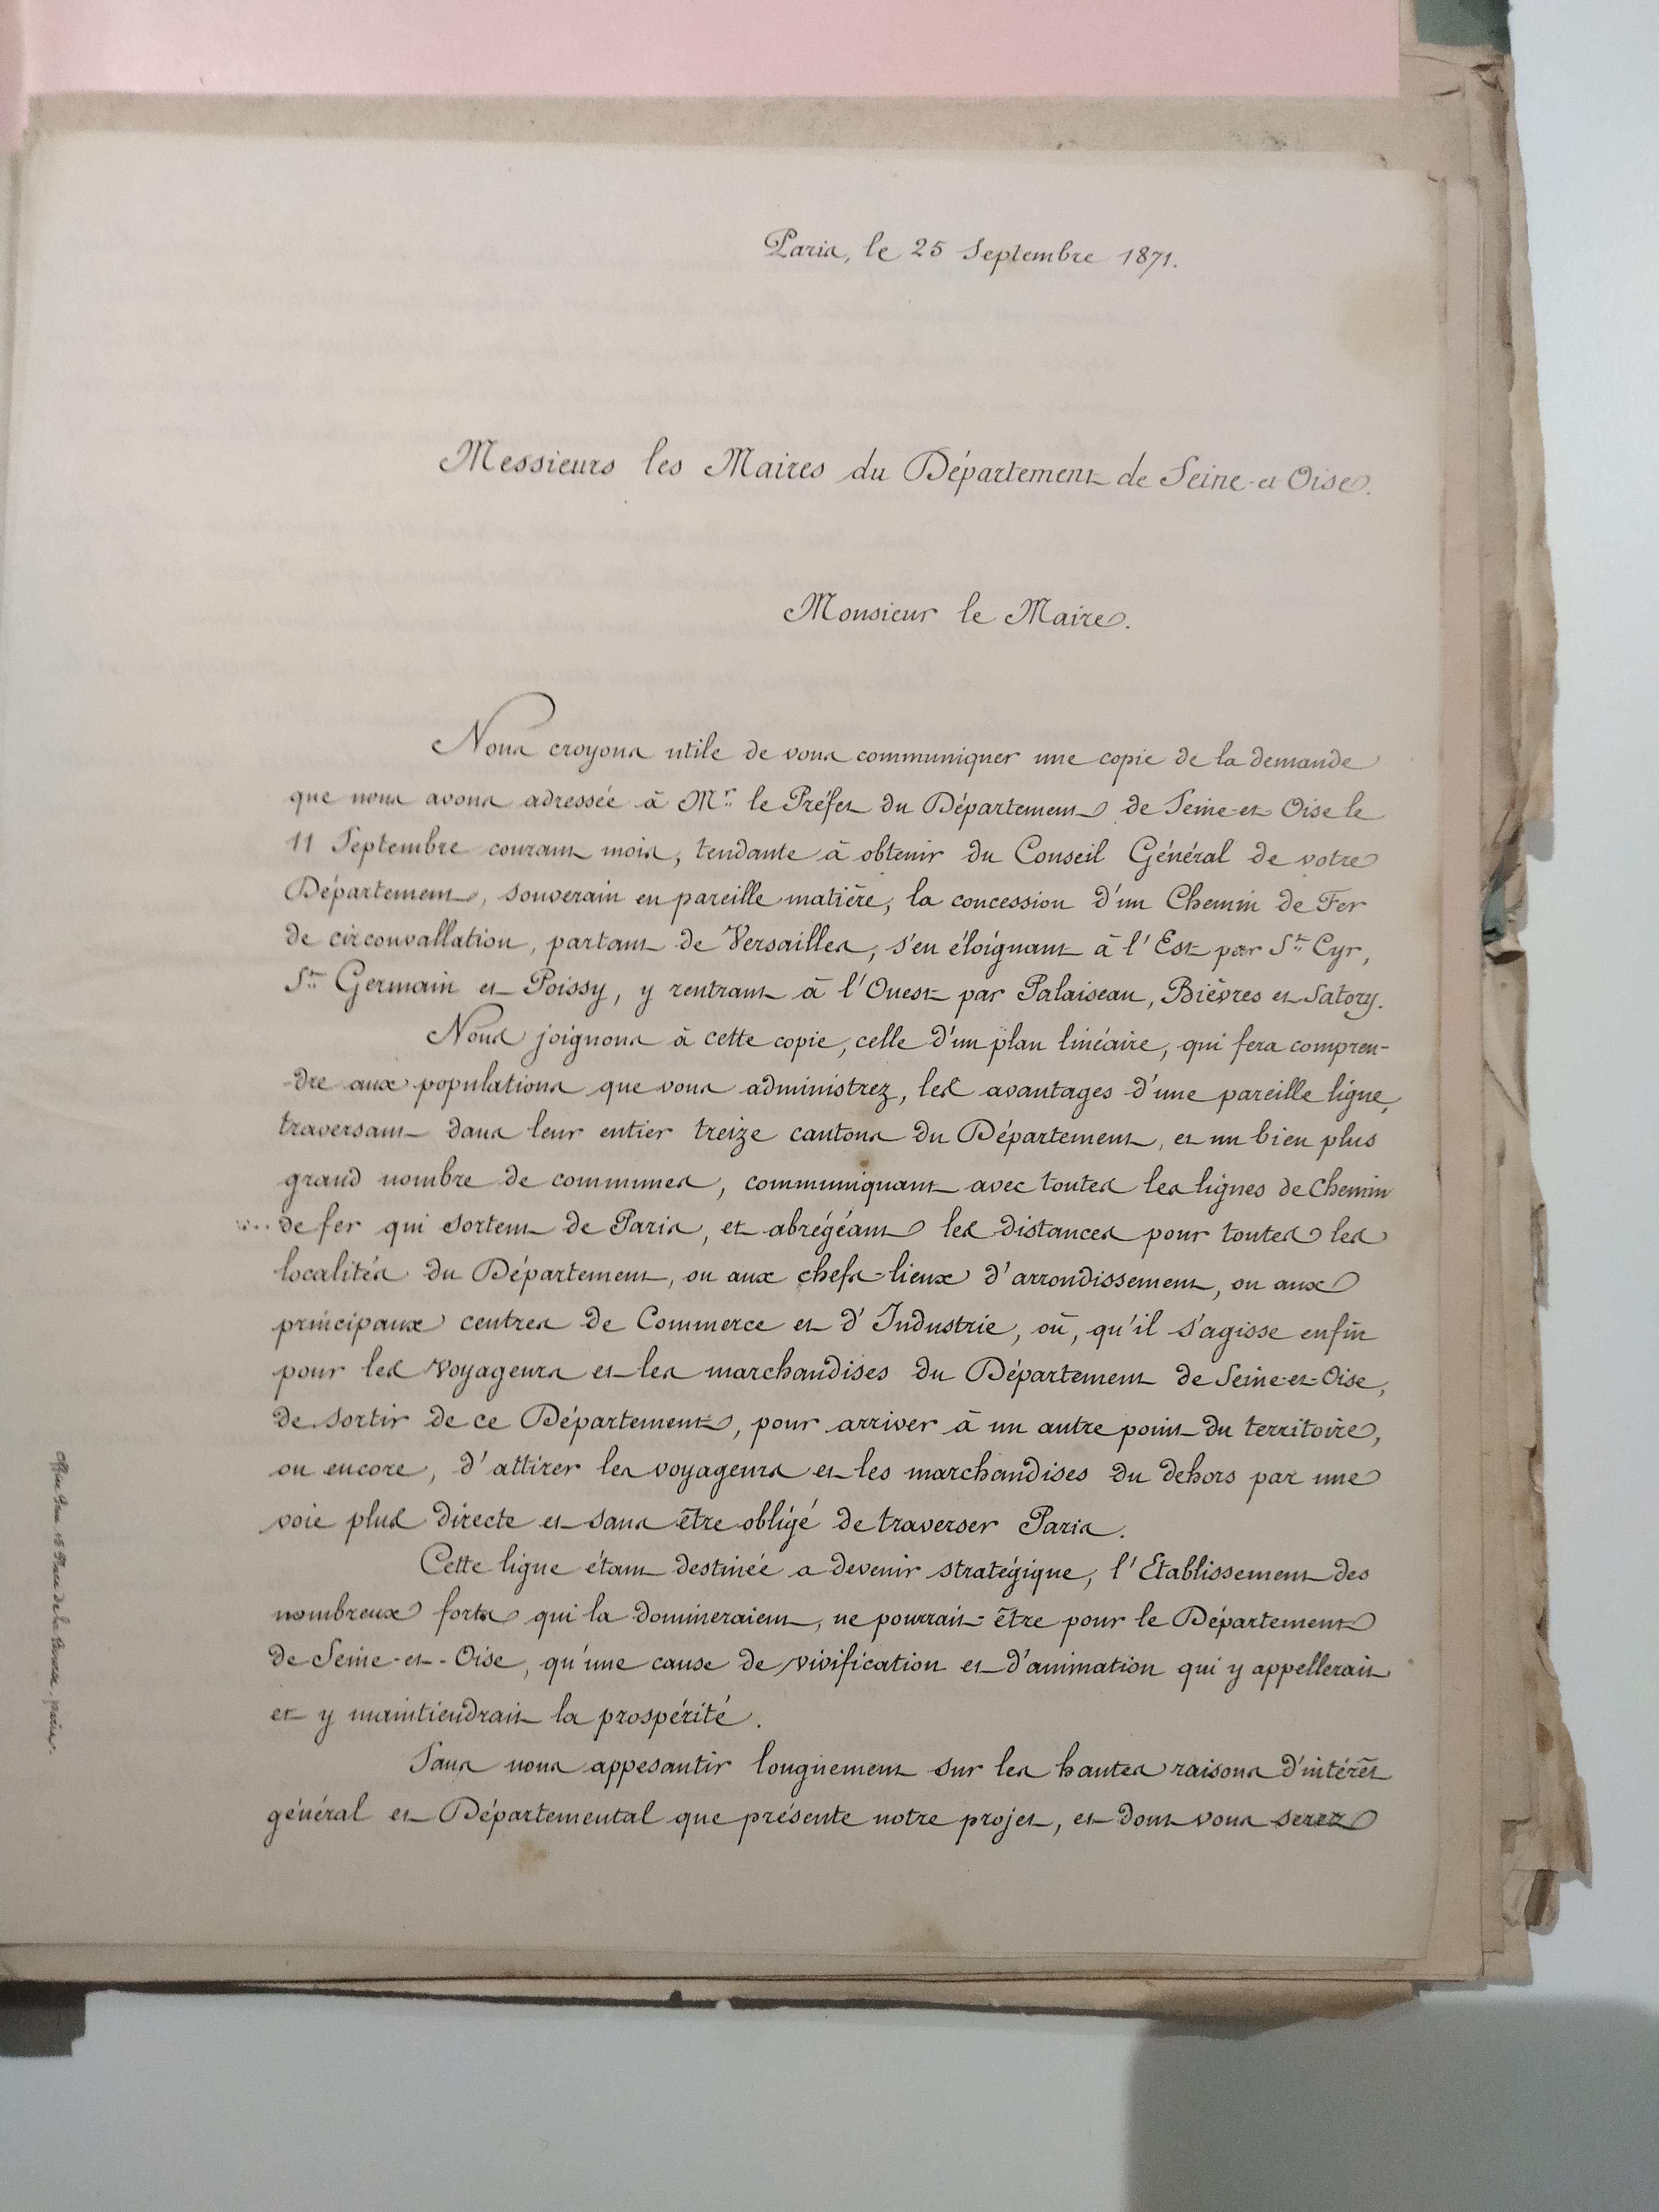 Paris, le 25 Septembre 1871.
Messieurs les Maires du Département de Seine-et Oise.
Monsieur le Maire.
Nous croyons utile de vous communiquer une copie de la demande
que nous avons adressée à Mr. le Préfet du Département de Seine-et-Oise le
11 Septembre courant mois, tendante à obtenir du Conseil Général de votre
Département, souverain en pareille matière, la concession d'un Chemin de Fer
de circonvallation, partant de Versailles, s'en éloignant à l'Est par St. Cyr,
St. Germain et Poissy, y rentrant à l'Ouest par Palaiseau, Bièvres et Satory.
Nous joignons à cette copie, celle d'un plan linéaire, qui fera compren-
-dre aux populations que vous administrez, les avantages d'une pareille ligne,
traversant dans leur entier treize cantons du Département, et un bien plus
grand nombre de communes, communiquant avec toutes les lignes de Chemin
de fer qui sortent de Paris, et abrégéant les distances pour toutes les
localités du Département, ou aux chefs-lieux d'arrondissement, ou aux
principaux centres de Commerce et d'Industrie, où, qu'il s'agisse enfin
pour les voyageurs et les marchandises du Département de Seine-et-Oise,
de sortir de ce Département, pour arriver à un autre point du territoire,
ou encore, d'attirer les voyageurs et les marchandises du dehors par une
voie plus directe et sans être obligé de traverser Paris.
Cette ligne étant destinée a devenir stratégique, l'Etablissement des
nombreux forts qui la domineraient, ne pourrait-être pour le Département
de Seine-et-Oise, qu'une cause de vivification et d'animation qui y appellerait
et y maintiendrait la prospérité.
Sans nous appesantir longuement sur les hautes raisons d'intérêt
général et Départemental que présente notre projet, et dont vous serez
de la Bourse, paris.